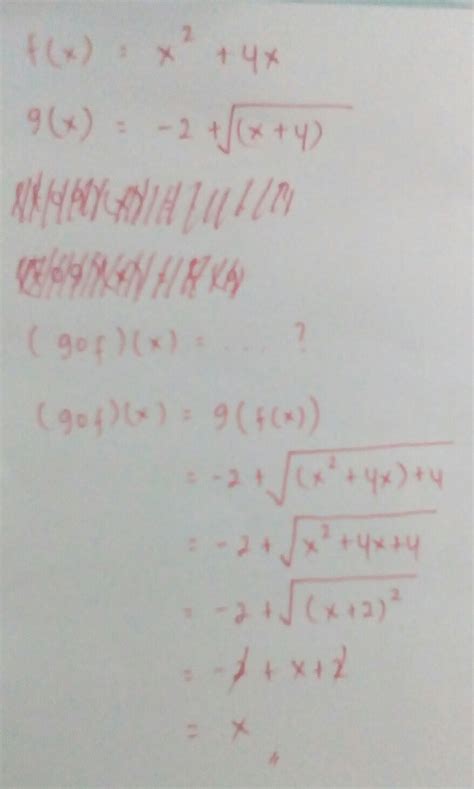 f(x) = x² + 4x
g(x) = -2 + √(x+4)
(gof)(x) = .... ?
(gof)(x) = g(f(x))
= -2 + √(x²+4x)+4
= -2 + √x²+4x+4
= -2 + √(x+2)²
= -2 + x + 2
= x